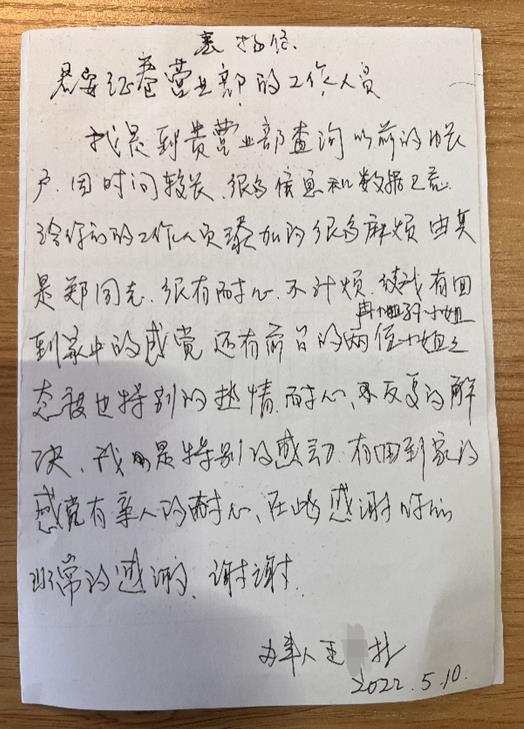 表扬信.
君安证券营业部的工作人员
我是到贵营业部查询以前的帐
户.因时间较长.很多信息和数据已忘.
给你们的工作人员添加的很多麻烦由其
是郑同志.很有耐心.不计烦.使我有回
到家中的感觉还有前台的两位小姐
态度也特别的热情.耐心.反复的解
决.我是特别的感动.有回到家的
感觉有亲人的耐心.在此感谢你们
非常的感谢.谢谢.
办事人王
2022.5.10.